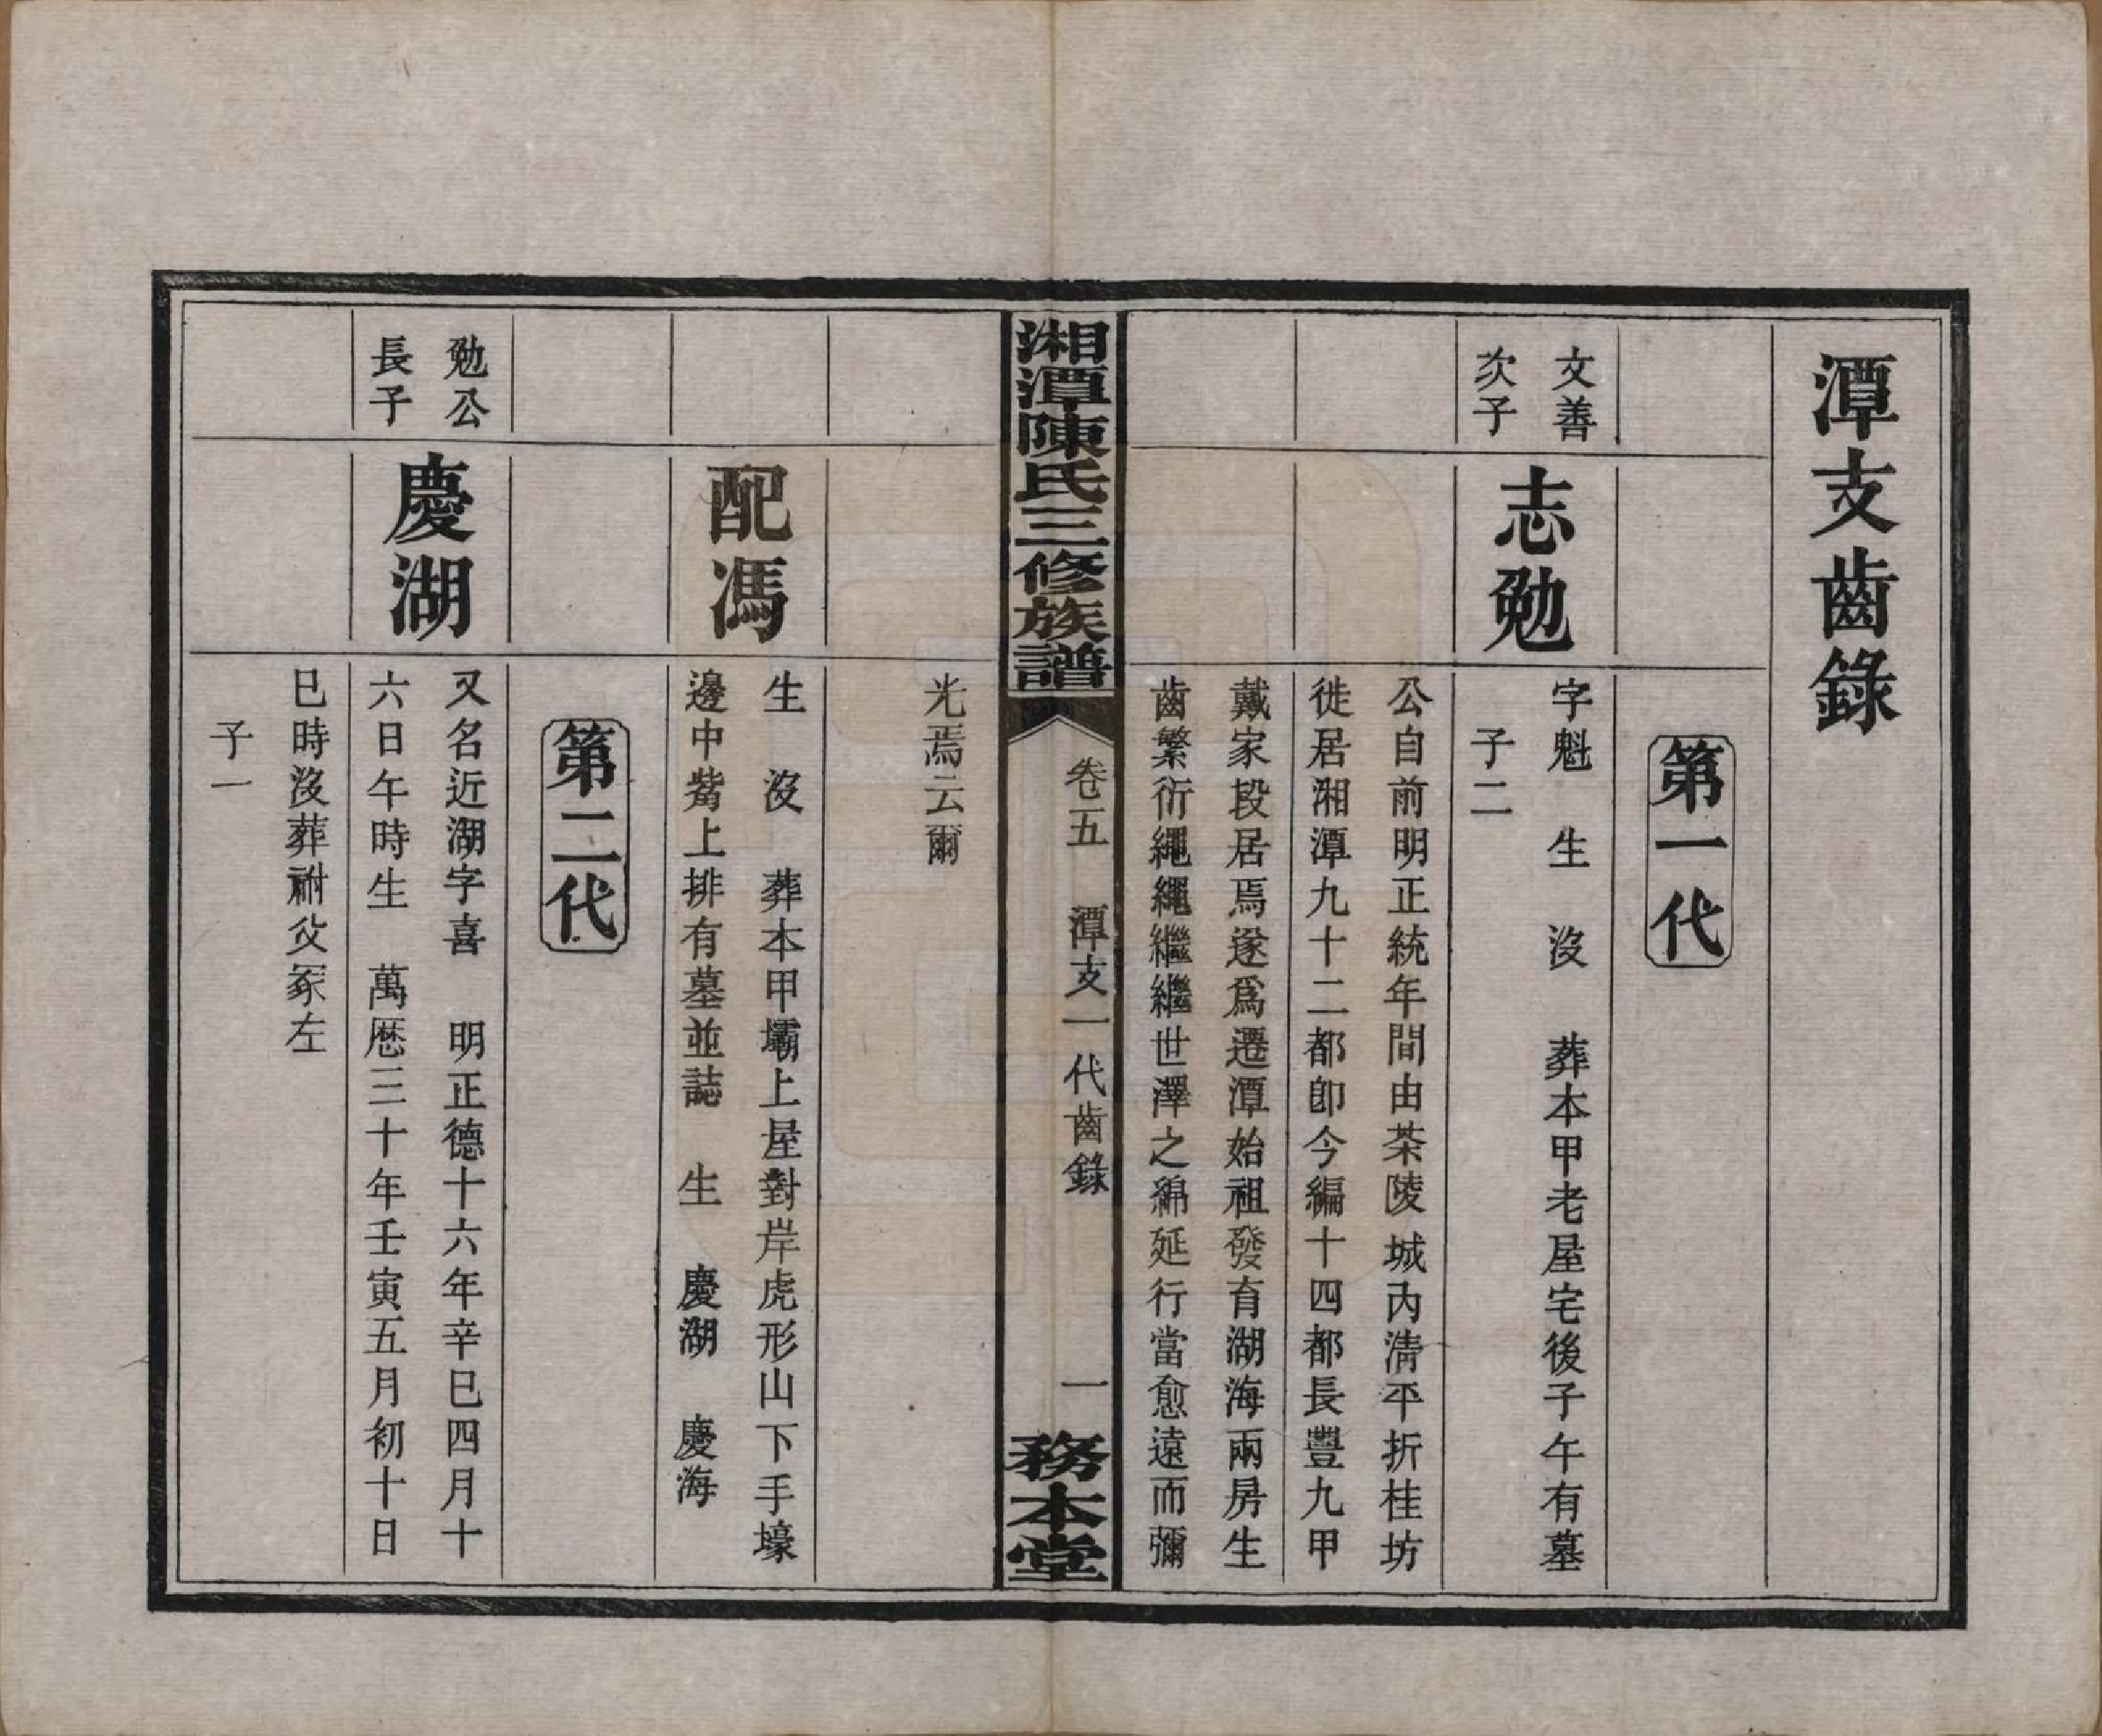 潭支齒錄
第一代
文善
次子
志勉
字魁　生　沒　葬本甲老屋宅後子午有墓
子二
公自前明正統年間由茶陵城內清平折桂坊
徙居湘潭九十二都卽今編十四都長豐九甲
戴家段居焉遂爲遷潭始祖發育湖海兩房生
齒繁衍繩繩繼繼世澤之綿延行當愈遠而彌
湘潭陳氏三修族譜
卷五　潭支一代齒錄
一
務本堂
光焉云爾
配馮
生　沒　葬本甲壩上屋對岸虎形山下手壕
邊中嘴上排有墓並誌　生　慶湖　慶海
第二代
勉公
長子
慶湖
又名近湖字喜　明正德十六年辛巳四月十
六日午時生　萬厯三十年壬寅五月初十日
巳時沒葬祔父冢左
子一